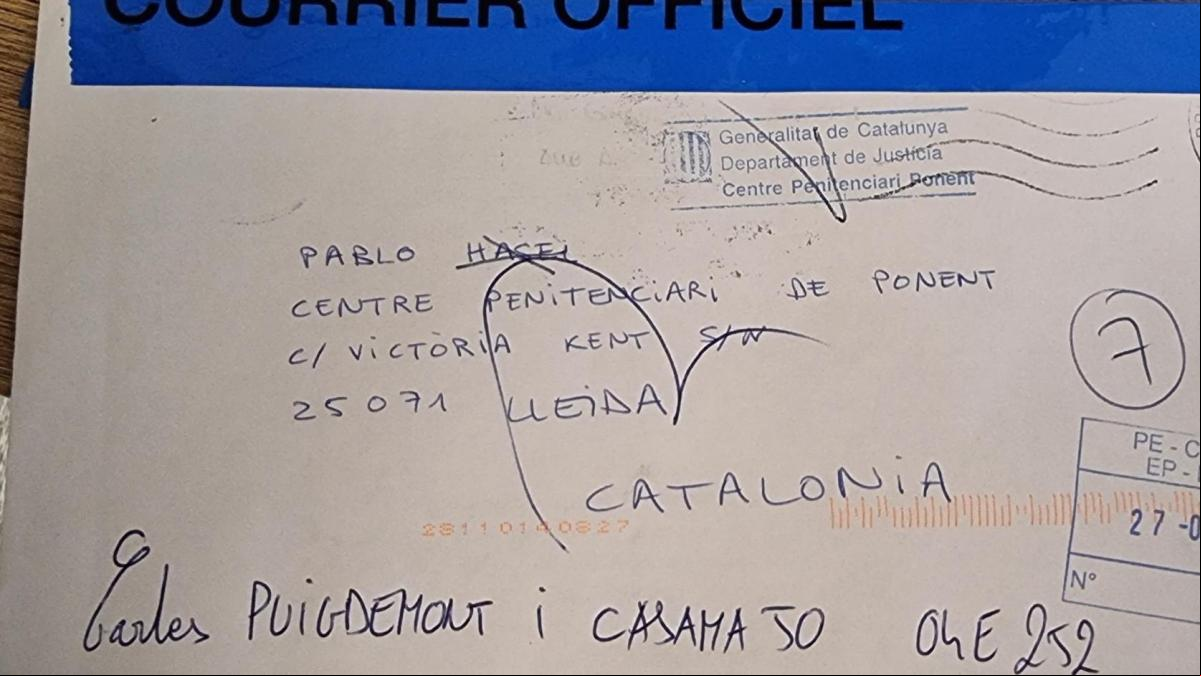 COURRIER OFFICIEL
Generalitat de Catalunya
Departament de Justícia
Centre Penitenciari Ponent
PABLO HASEL
CENTRE PENITENCIARI DE PONENT
C/ VICTÒRIA KENT S/N
25071 LLEIDA
CATALONIA
7
PE - C
EP -
27 -0
Nº
28110140827
Carles PUIGDEMONT i CASAMAJO 04E 252